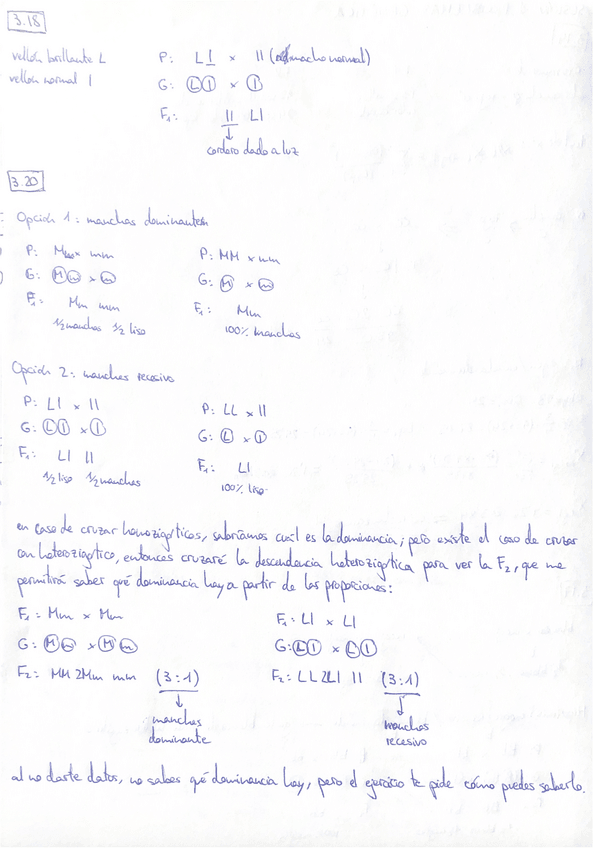 3.18
vellón brillante L P: Ll x ll (macho normal)
vellón normal l G: L l x l
F₁: ll Ll
cordero dado a luz
3.20
Opción 1: manchas dominantes
P: Mm x mm P: MM x mm
G: M m x m G: M x m
F₁: Mm mm F₁: Mm
1/2 manchas 1/2 liso 100% manchas
Opción 2: manchas recesivo
P: Ll x ll P: LL x ll
G: L l x l G: L x l
F₁: Ll ll F₁: Ll
1/2 liso 1/2 manchas 100% liso
en caso de cruzar homozigóticos, sabríamos cuál es la dominancia; pero existe el caso de cruzar
con heterozigótico, entonces cruzaré la descendencia heterozigótica para ver la F₂, que me
permitirá saber qué dominancia hay a partir de las proporciones:
F₁: Mm x Mm F₁: Ll x Ll
G: M m x M m G: L l x L l
F₂: MM 2Mm mm (3:1) F₂: LL 2Ll ll (3:1)
manchas manchas
dominante recesivo
al no darte datos, no sabes qué dominancia hay, pero el ejercicio te pide cómo puedes saberlo.